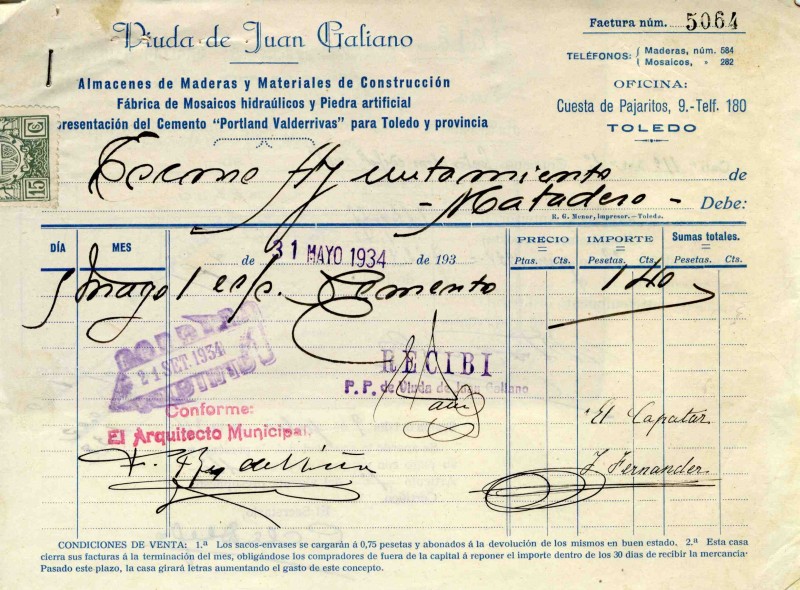 Viuda de Juan Galiano
Factura núm. 5064
TELÉFONOS: { Maderas, núm. 584
Mosaicos, » 282
Almacenes de Maderas y Materiales de Construcción
OFICINA:
Fábrica de Mosaicos hidraúlicos y Piedra artificial
Cuesta de Pajaritos, 9.-Telf. 180
presentación del Cemento "Portland Valderrivas" para Toledo y provincia
TOLEDO
15 C
Excmo Ayuntamiento de
- Matadero - Debe:
R. G. Menor, Impresor.-Toledo.
DÍA MES PRECIO IMPORTE Sumas totales.
de 31 MAYO 1934 de 193 Ptas. Cts. Pesetas. Cts. Pesetas. Cts.
5 Mayo 1 Cemento 1 40
21 SET. 1934
RECIBI
P. P. de Viuda de Juan Galiano
Conforme:
El Arquitecto Municipal,
El Capataz
J. Fernander
CONDICIONES DE VENTA: 1.ª Los sacos-envases se cargarán á 0,75 pesetas y abonados á la devolución de los mismos en buen estado. 2.ª Esta casa
cierra sus facturas á la terminación del mes, obligándose los compradores de fuera de la capital á reponer el importe dentro de los 30 días de recibir la mercancía
Pasado este plazo, la casa girará letras aumentando el gasto de este concepto.